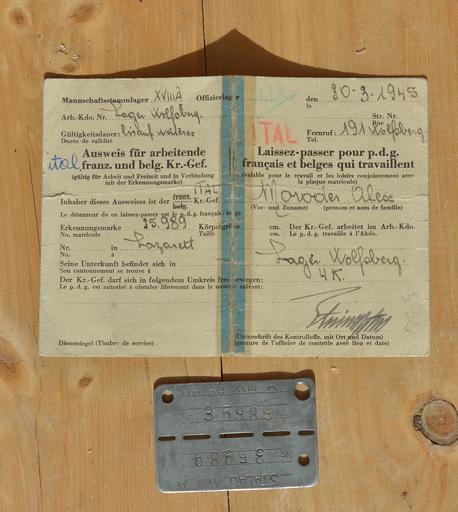 Mannschaftsstammlager XVIII A Offizierlager den 30-3-1945
Arb.-Kdo. Nr. Lager Wolfsberg. Str. Nr.
Rue
Gültigkeitsdauer:
Durée de validité
Fernruf: 191 Wolfsberg
Tel.
ital ITAL
Ausweis für arbeitende
franz. und belg. Kr.-Gef.
(gültig für Arbeit und Freizeit und in Verbindung
mit der Erkennungsmarke)
Laissez-passer pour p.d.g.
français et belges qui travaillent
(valable pour le travail et les loisirs conjointement avec
la plaque matricule)
ITAL
Inhaber dieses Ausweises ist der franz. belg. Kr.-Gef. Moroder Alex
Le détenteur de ce laissez-passer est le p.d.g. français belge (Vor- und Zuname) (prénom et nom de famille)
Erkennungsmarke 35.989 Körpergröße cm. Der Kr.-Gef. arbeitet im Arb.-Kdo.
No. matricule Taille cm. Le p.d.g. travaille à l'Akdo.
Nr. in Lazarett Lager Wolfsberg.
No. à
Seine Unterkunft befindet sich in 4K.
Son cantonnement se trouve à
Der Kr.-Gef. darf sich in folgendem Umkreis frei bewegen:
Le p. d. g. est autorisé à circuler librement dans le secteur suivant:
Dienstsiegel (Timbre de service)
Unterschrift des Kontrolloffz. mit Ort und Datum)
(signature de l'officier de contrôle avec lieu et date)
STALAG XVIII A
Nr. 35989
Nr. 35989
STALAG XVIII A